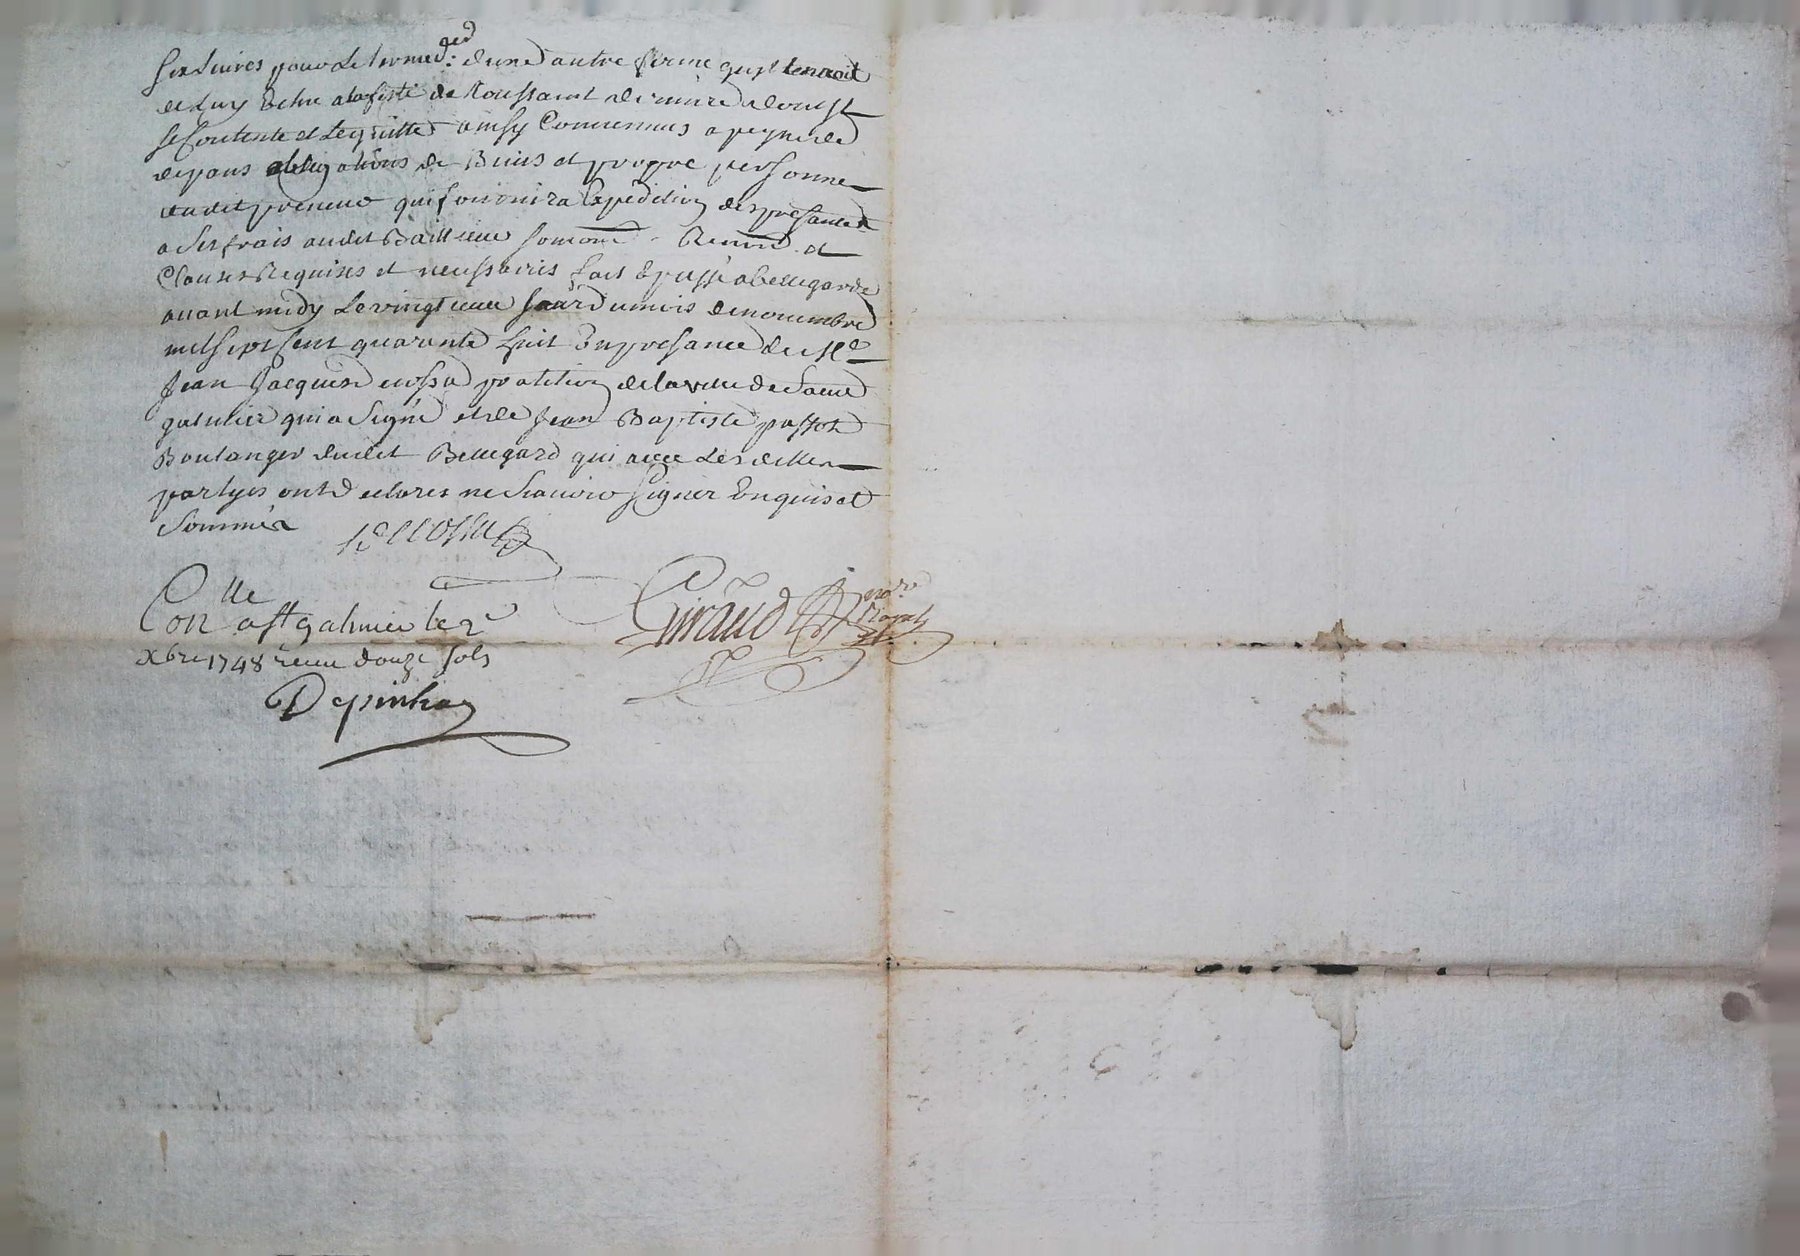 six livres pour le terme d'une autre ferme qu'il tenoit
de luy Echu a la feste de Toussaint derniere dont il
se Contente et Le quitte ainsy Convenus a peyne de
depans obligations de Biens et propre personne
dudit preneur qui fournira Expedition des presantes
a ses frais audit Bailleur soumon Renon et
Clauses Requises et necessaires fait & passé a bellegarde
avant midy Le vingtieme Jour du mois de novembre
mil sept Cent quarante huit En presance de Me
Jean Jacques praticien de la ville de Saint
galmier qui a Signé et de Jean Baptiste passot
Boulanger dudit Bellegard qui avec Les dittes
partyes ont declarés ne Scavoir signer Enquis et
Sommés
Conlle a st galmier le 2e
xbre 1748 receu douze sols
Giraud no.re Royal
Depinhac